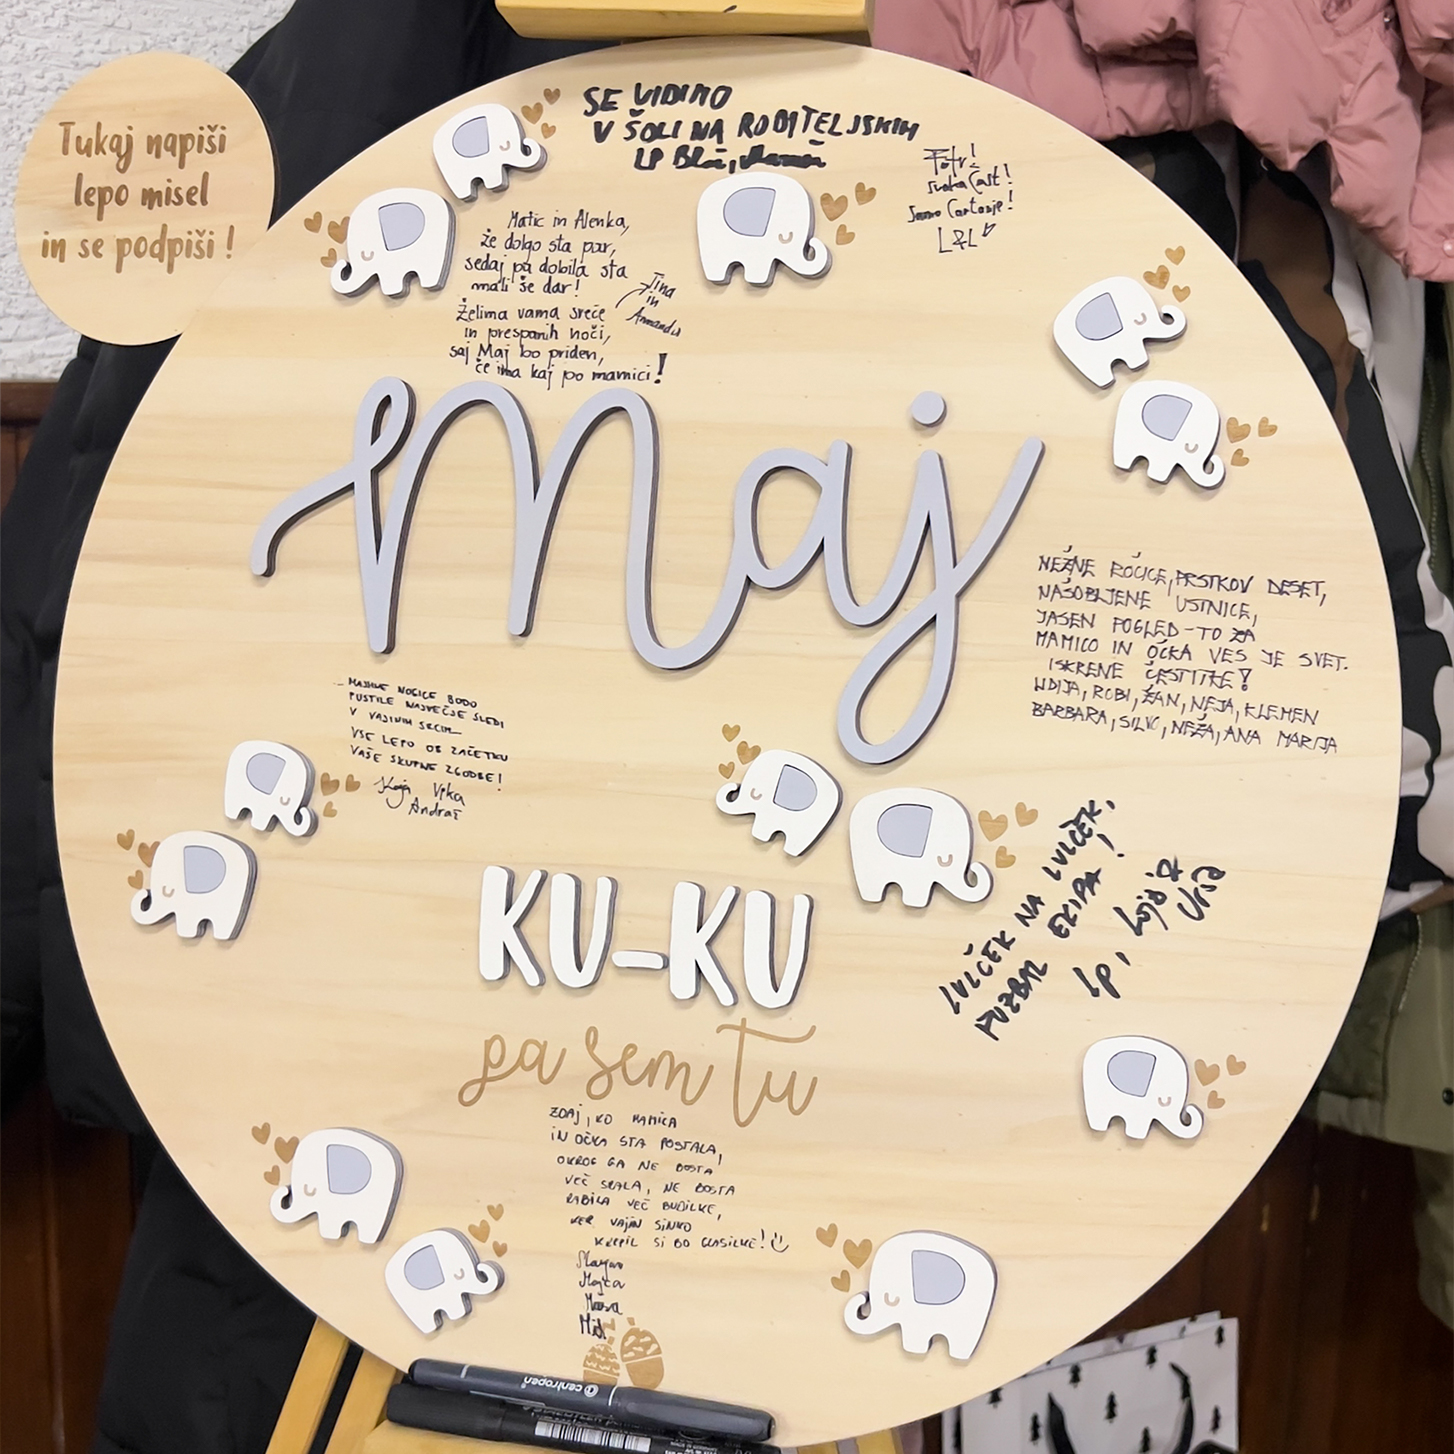 Tukaj napiši
lepo misel
in se podpiši !
SE VIDIMO
V ŠOLI NA RODITELJSKIH
LP Blaž,
Fotr!
svaka Čast!
Samo Cartanje!
L&L
Matic in Alenka,
že dolgo sta par,
sedaj pa dobila sta
mali še dar!
Želima vama sreče
in prespanih noči,
saj Maj bo priden,
če ima kaj po mamici!
Tina
in
Maj
NEŽNE ROČICE, PRSTKOV DESET,
NAŠOBLJENE USTNICE,
JASEN POGLED - TO ZA
MAMICO IN OČKA VES JE SVET.
ISKRENE ČESTITKE!
LIDIJA, ROBI, ŽAN, NEJA, KLEMEN
BARBARA, SILVO, NEŽA, ANA MARIJA
... MAJHNE NOGICE BODO
PUSTILE NAJVEČJE SLEDI
V VAJINIH SRCIH...
VSE LEPO OB ZAČETKU
VAŠE SKUPNE ZGODBE!
Andraž
LULČEK NA LULČEK,
FUZBAL EKIPA!
LP,
Urša
KU-KU
pa sem tu
ZDAJ, KO MAMICA
IN OČKA STA POSTALA,
OKROG GA NE BOSTA
VEČ SRALA, NE BOSTA
RABILA VEČ BUDILKE,
KER VAJIN SINKO
KREPIL SI BO GLASILKE!
Marjan
Mojca
Maša
centropen